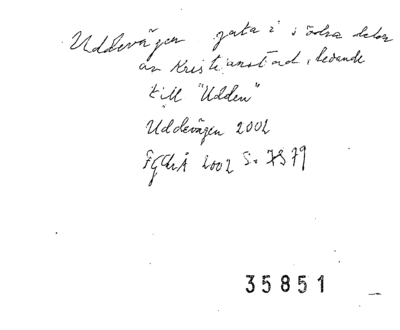 Uddevägen gata i södra delen
av Kristianstad, ledande
till "Udden"
Uddevägen 2002
FgChÅ 2002 S. 7579
35851